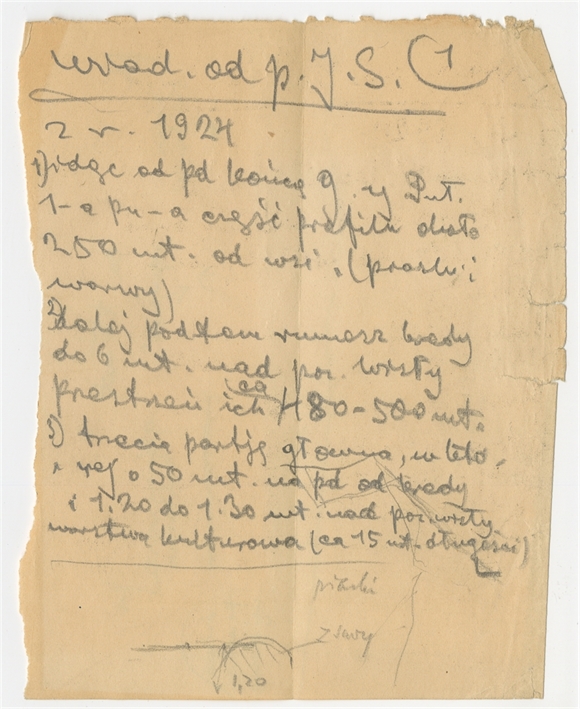 wiad. od p. J. S. (1
z r. 1924.
1) idąc od pd końca g. y Puł.
1-a pn-a część profilu około
250 mt. od wsi. (piaski i
warwy)
2) dalej podstaw rumosz kredy
do 6 mt. nad poz. Wisły
przestrzeń ich ca 480-500 mt.
3) trzecia partja główna, w
o 50 mt. na pd od kredy
i 1.20 do 1.30 mt. nad poz. Wisły
warstwa kulturowa (ca 15 mt. długości)
piaski
z
1,20